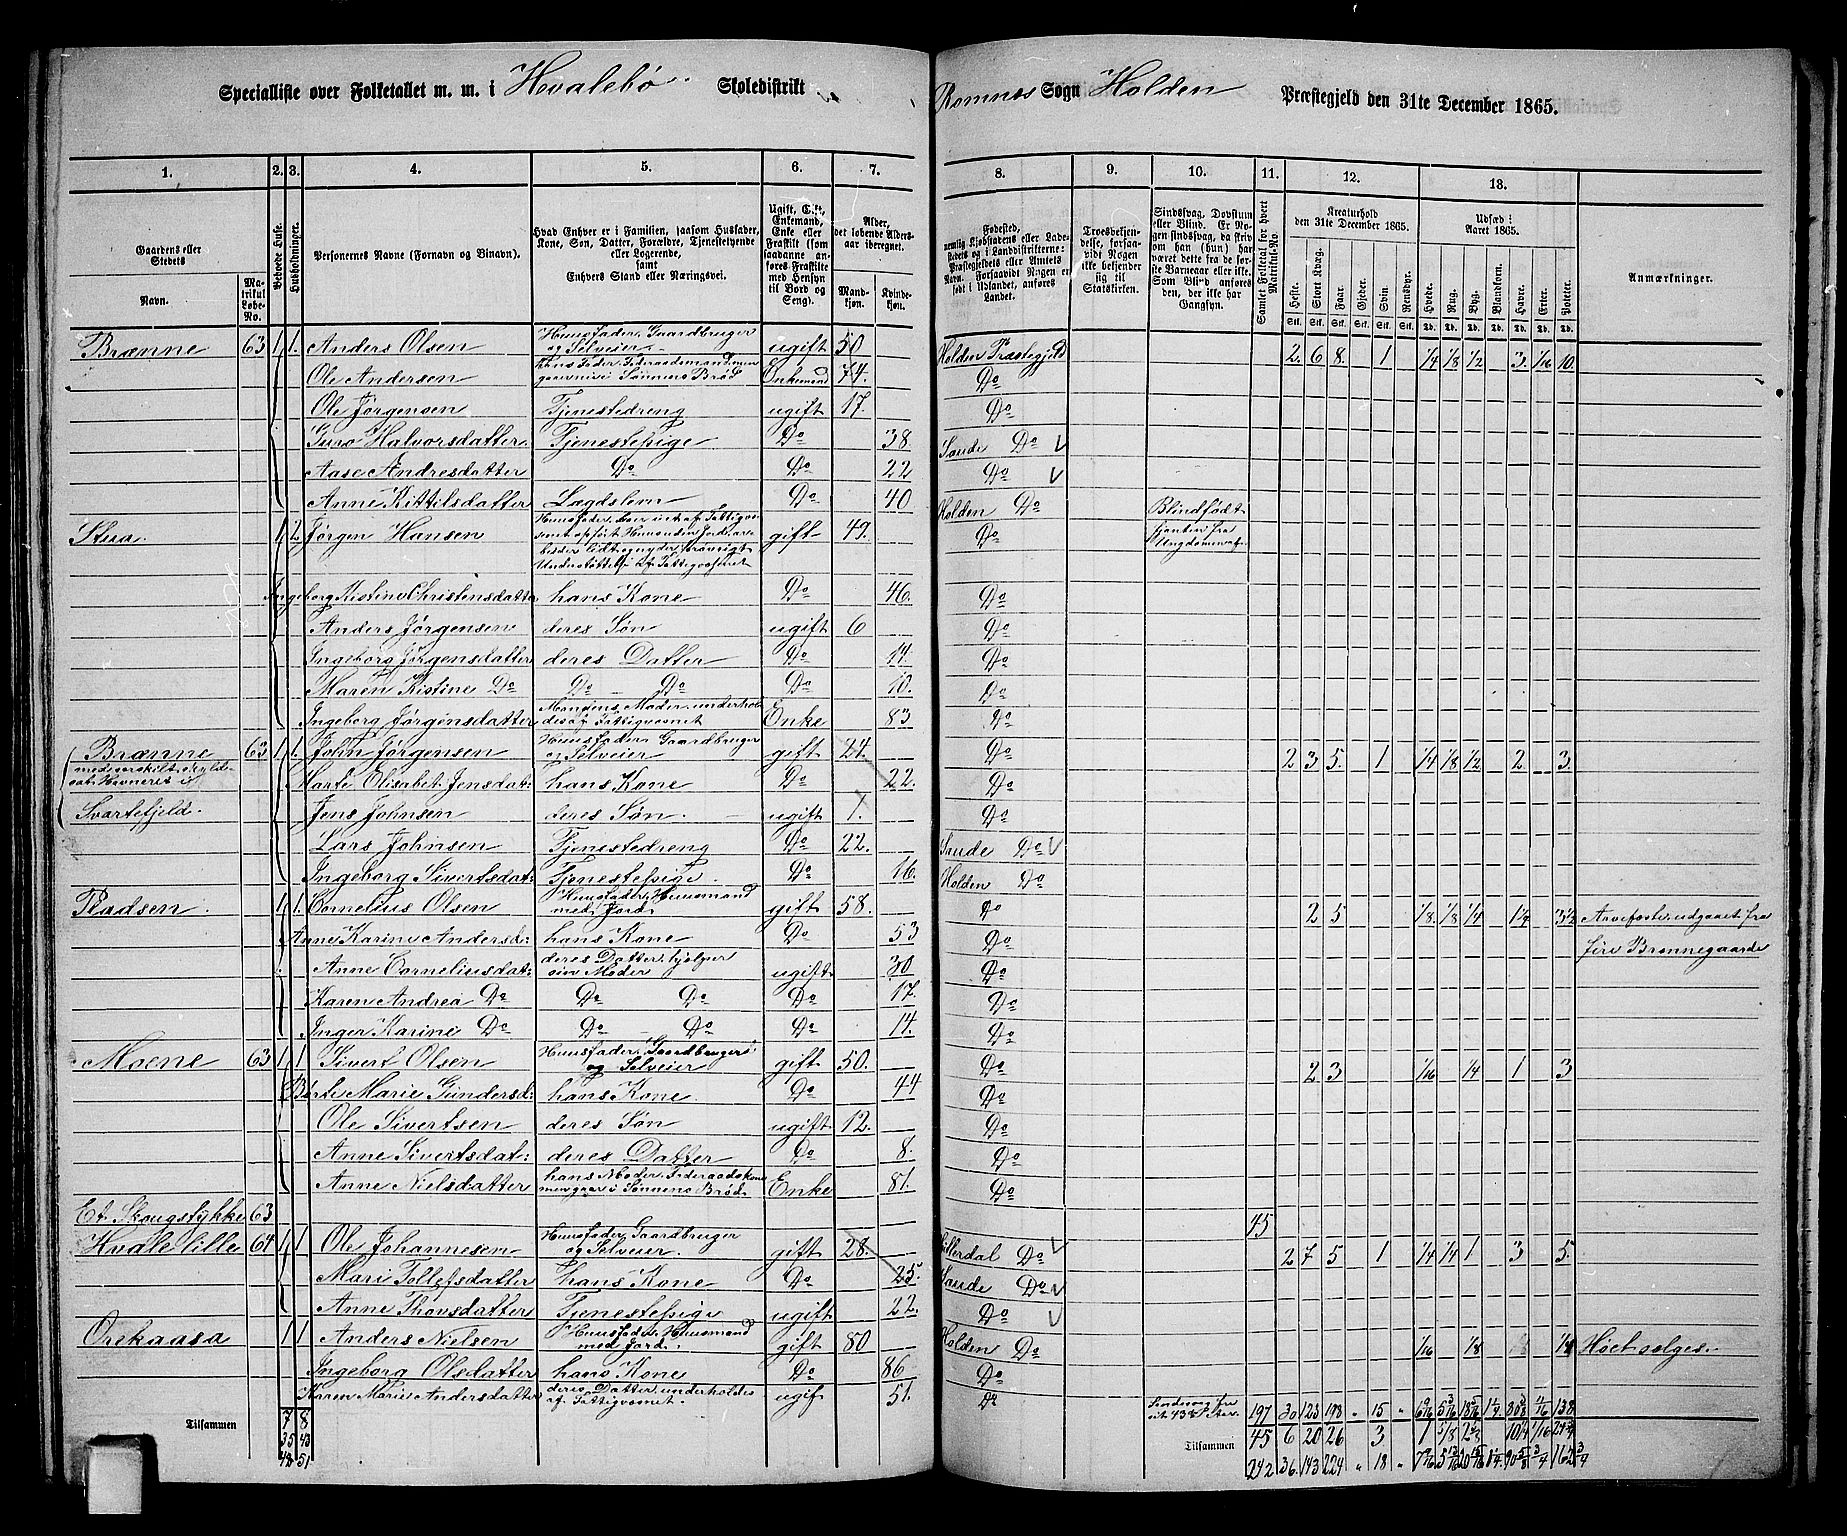 Specialliste over Folketallet m. m. i Hvalebø Skoledistrikt Romnes Sogn Holden Præstegjeld den 31te December 1865.
1. 2. 3. 4. 5. 6. 7. 8. 9. 10. 11. 12. 13.
Gaardens eller Stedets Navn. Matrikul Løbe-No. Beboede Huse. Husholdninger. Personernes Navne (Fornavn og Tilnavn).
Hvad Enhver er i Familien, saasom Husfader, Kone, Søn, Datter, Forældre, Tjenestetyende eller Logerende, samt Enhvers Stand eller Næringsvei.
Ugift, Gift, Enkemand, Enke eller Fraskilt (som saadanne anføres Fraskilte med Hensyn til Bord og Seng).
Alder, det løbende Alders-aar iberegnet. Mandkjøn. Kvindekjøn.
Fødested, nemlig Kjøbstadens eller Ladestedets og i Landdistrikterne: Præstegjeldets eller Amtets Navn. Forsaavidt Nogen er født i Udlandet, anføres Landet.
Troesbekjendelse, forsaavidt Nogen ikke bekjender sig til Statskirken.
Sindssvag, Døvstum eller Blind. Er Nogen sindssvag, da skrives om han (hun) har været dette fra de første Barneaar eller ikke. Som Blind anføres den, der ikke har Gangsyn.
Samlet Folketal for hvert Matrikul-No.
Kreaturhold den 31te December 1865. Heste. Stort Kvæg. Faar. Gjeder. Svin. Rensdyr.
Udsæd i Aaret 1865. Hvede. Rug. Byg. Blandkorn. Havre. Erter. Poteter.
Anmærkninger.
Brænne 63 1 1. Anders Olsen Huusfader, Gaardbruger og Selveier ugift 50 Holden Præstegjeld 2. 6 8. 1 1/4 1/8 1/2 3. 1/16 10.
Ole Andersen Enkemand 74. Do
Ole Jørgensen Tjenestedreng ugift 17. Do
Guro Halvorsdatter. Tjenestepige Do 38. Saude Do V
Aase Andresdatter Do Do 22 Do V
Anne Kittilsdatter Lægdslem Do 40 Holden Do Blindfødt
Stua. 1 2. Jørgen Hansen gift 49. Do
Ingeborg Kistine Christensdatter hans Kone Do 46. Do
Anders Jørgensen deres Søn ugift 6 Do
Ingeborg Jørgensdatter deres Datter Do 14. Do
Maren Kistine Do Do Do Do 10. Do
Ingeborg Jørgensdatter Mandens Moder, underholdes af Fattigvæsnet Enke 83 Do
Brænne 63 1 1. John Jørgensen Huusfader, Gaardbruger og Selveier gift 24. Do 2. 3 5. 1 1/4 1/8 1/2 2. 3.
Marte Olisabet Jensdat: hans Kone Do 22. Do
Svartefjeld. Jens Johnsen deres Søn. ugift 1. Do
Lars Johnsen Tjenestedreng Do 22. Saude Do V
Ingeborg Sivertsdat: Tjenestepige. Do 16. Holden Do
Pladsen. 1 1. Cornelius Olsen Huusfader, Huusmand med Jord gift 58. Do 2 5. 1/8. 1/8 1/4 3 1/2
Anne Karine Andersd: hans Kone Do 53 Do
Anne Corneliusdat: deres Datter, hjelper sin Moder ugift 30 Do
Karen Andrea Do Do Do Do 17. Do
Inger Karine Do Do Do Do 14. Do
Moene 63 1 1 Sivert Olsen Huusfader, Gaardbruger og Selveier gift 50. Do 2 3 1/16 1/4 1 3
Marie Gundersd: hans Kone Do 44 Do
Ole Sivertsen deres Søn ugift 12. Do
Anne Sivertsdat: deres Datter Do 8. Do
Anne Nielsdatter Enke 81. Do
Et Skougstykke 63 45
Hvale lille 64 1 1 Ole Johannesen Huusfader, Gaardbruger og Selveier. gift 28. Hitterdal Do V 2 7 5 1 1/4 1/4 1 3 5.
Mari Tollefsdatter hans Kone Do 25. Saude Do V
Anne Thovsdatter Tjenestepige ugift 22. Do V
Orekaasa 1 1 Anders Nielsen Huusfader, Huusmand med Jord. gift 80 Holden Do 1/16 1/8 Høet sælges.
Ingeborg Olsdatter hans Kone Do 86 Do
Karen Marie Andersdatter deres Datter, underholdes af Fattigvæsnet. ugif 51. Do
Tilsammen 7 8 197 30 123 198 " 15 "
35 43 Tilsammen 45 6 20 26 3
42 51 242 36. 143 224 " 18 "